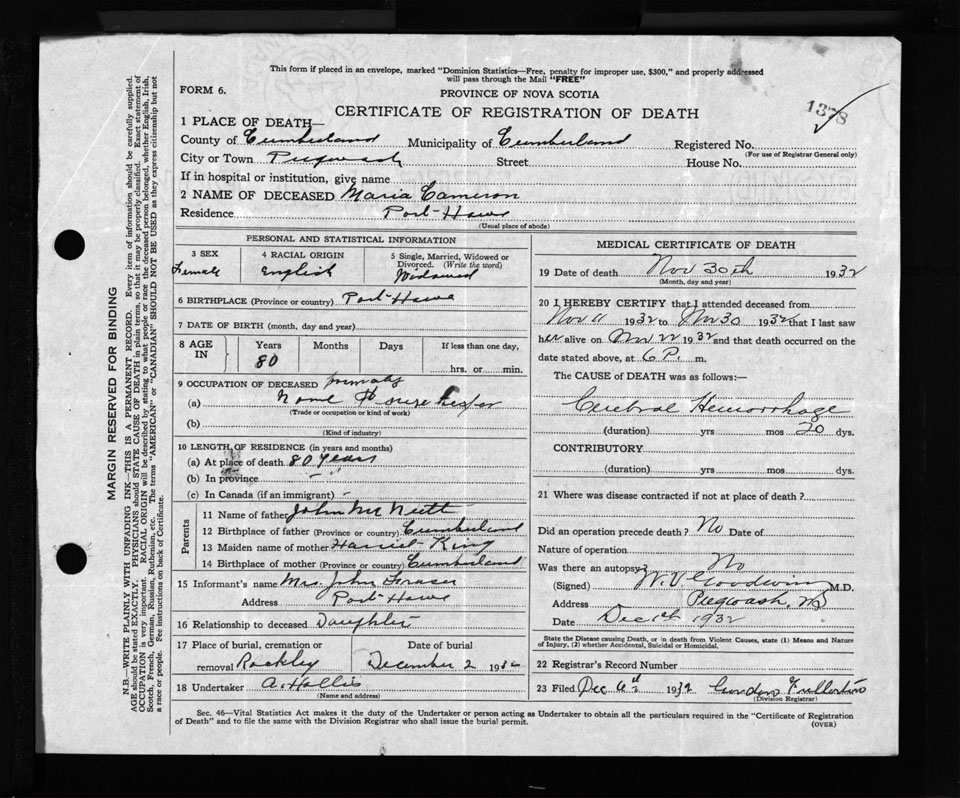 This form if placed in an envelope, marked "Dominion Statistics—Free, penalty for improper use, $300," and properly addressed
will pass through the Mail "FREE"
FORM 6.
PROVINCE OF NOVA SCOTIA
1378
CERTIFICATE OF REGISTRATION OF DEATH
1 PLACE OF DEATH—
County of Cumberland Municipality of Cumberland Registered No.
(For use of Registrar General only)
City or Town Pugwash Street House No.
If in hospital or institution, give name
2 NAME OF DECEASED Maria Cameron
Residence Port-Howe
(Usual place of abode)
MARGIN RESERVED FOR BINDING
N.B.—WRITE PLAINLY WITH UNFADING INK—THIS IS A PERMANENT RECORD. Every item of information should be carefully supplied.
AGE should be stated EXACTLY. PHYSICIANS should STATE CAUSE OF DEATH in plain terms, so that it may be properly classified. Exact statement of
OCCUPATION is very important. RACIAL ORIGIN will be described by stating to what people or race the deceased person belonged, whether English, Irish,
Scotch, French, German, Russian, Ruthenian, etc. The terms "AMERICAN" or "CANADIAN" SHOULD NOT BE USED as they express citizenship but not
a race or people. See instructions on back of Certificate.
PERSONAL AND STATISTICAL INFORMATION
3 SEX
Female
4 RACIAL ORIGIN
English
5 Single, Married, Widowed or
Divorced. (Write the word)
Widowed
6 BIRTHPLACE (Province or country) Port-Howe
7 DATE OF BIRTH (month, day and year)
8 AGE IN Years Months Days If less than one day,
80 hrs. or min.
9 OCCUPATION OF DECEASED
(a) None House keeper
(Trade or occupation or kind of work)
(b)
(Kind of industry)
10 LENGTH OF RESIDENCE (in years and months)
(a) At place of death 80 years
(b) In province
(c) In Canada (if an immigrant) -
Parents
11 Name of father John
12 Birthplace of father (Province or country) Cumberland
13 Maiden name of mother Harriet King
14 Birthplace of mother (Province or country) Cumberland
15 Informant's name Mrs John Fraser
Address Port-Howe
16 Relationship to deceased Daughter
17 Place of burial, cremation or
removal Rockley December 2 19
18 Undertaker A. Hollis
(Name and address)
MEDICAL CERTIFICATE OF DEATH
19 Date of death Nov 30th 1932
(Month, day and year)
20 I HEREBY CERTIFY that I attended deceased from
Nov 11 1932 to Nov 30 1932 that I last saw
her alive on Nov 22 1932 and that death occurred on the
date stated above, at 6 P. m.
The CAUSE of DEATH was as follows:—
Cerebral Hemorrhage
(duration) yrs mos 20 dys.
CONTRIBUTORY
(duration) yrs mos dys.
21 Where was disease contracted if not at place of death?
Did an operation precede death? No Date of
Nature of operation
Was there an autopsy? No
(Signed) W. V. Goodwin M.D.
Address Pugwash, NS
Date Dec 1st 1932
State the Disease causing Death, or in death from Violent Causes, state (1) Means and Nature
of Injury, (2) whether Accidental, Suicidal or Homicidal.
22 Registrar's Record Number
23 Filed Dec 6th 1932 Fullerton
(Division Registrar)
Sec. 46—Vital Statistics Act makes it the duty of the Undertaker or person acting as Undertaker to obtain all the particulars required in the "Certificate of Registration
of Death" and to file the same with the Division Registrar who shall issue the burial permit.
(OVER)